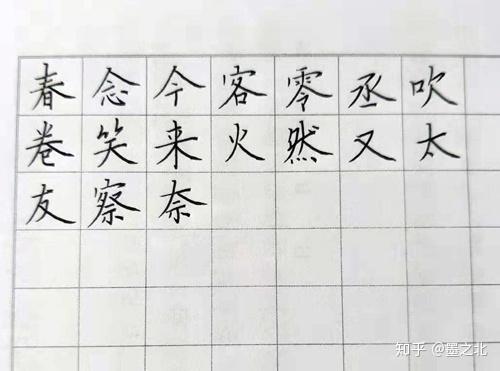 春念今客零丞吹
卷笑来火然又太
友察奈
知乎 @墨之北